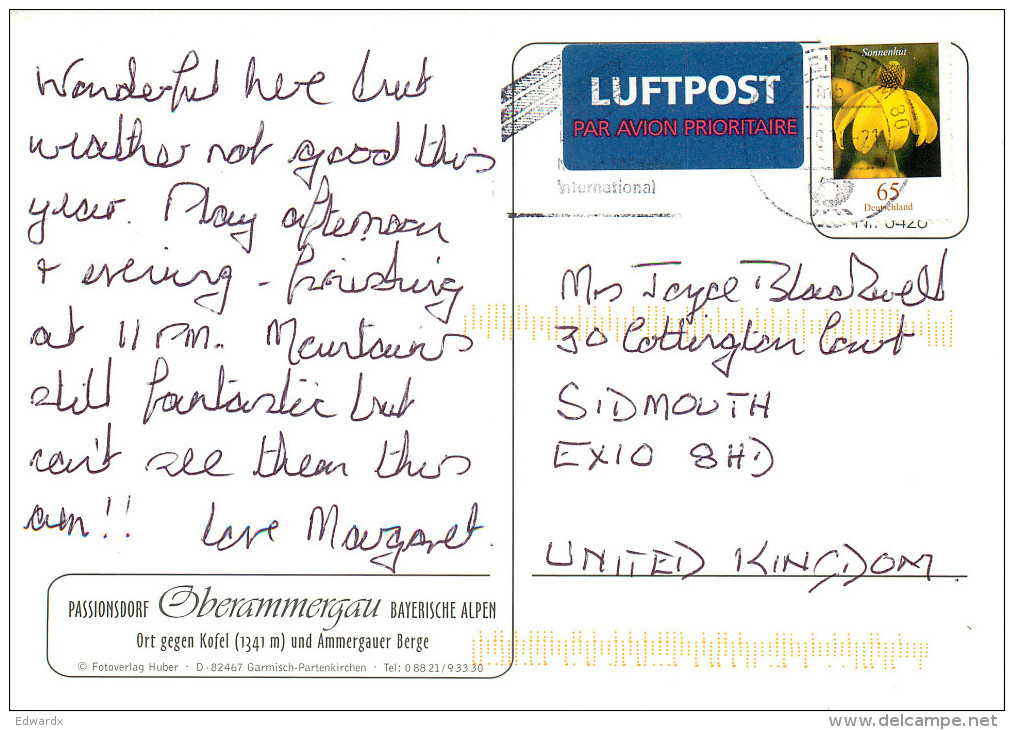 Wonderful here but
weather not good this
year. Play afternoon
+ evening - finishing
at 11 PM. Mountains
still fantastic but
can't see them this
am!! Love Margaret.
LUFTPOST
PAR AVION PRIORITAIRE
International
Sonnenhut
80
65
Deutschland
Nr. 0420
Mrs Joyce Blackwell
30 Cottington Court
SIDMOUTH
EX10 8HD
UNITED KINGDOM
PASSIONSDORF Oberammergau BAYERISCHE ALPEN
Ort gegen Kofel (1341 m) und Ammergauer Berge
© Fotoverlag Huber · D-82467 Garmisch-Partenkirchen · Tel: 0 88 21/9 33 30
Edwardx
delcampe.net